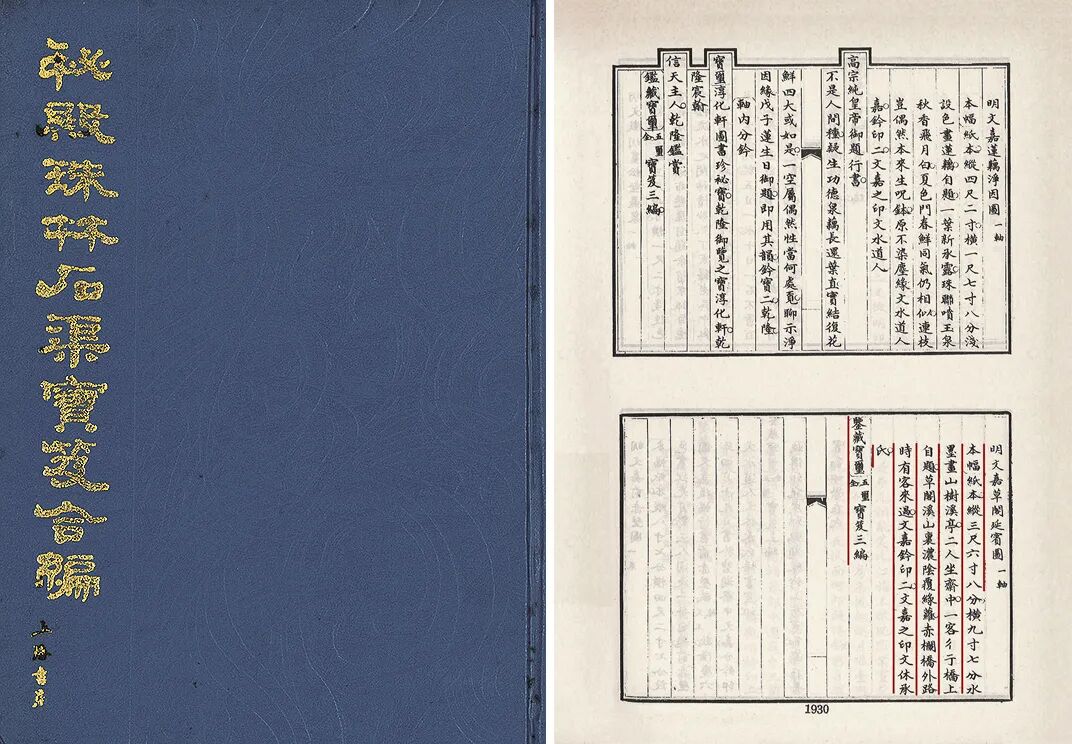 秘殿珠林石渠寶笈合編
上海書店
明文嘉蓮藕淨因圖一軸
本幅紙本縱四尺二寸橫一尺七寸八分淺
設色畫蓮藕自題一葉新承露珠聯噴玉泉
秋香飛月白夏色鬥春鮮同氣仍相似連枝
豈偶然本來生呪鉢原不染塵緣文水道人
嘉鈐印二文嘉之印文水道人
高宗純皇帝御題行書
不是人間種疑生功德泉藕長還葉直實結復花
鮮四大或如是一空屬偶然性當何處覓聊示淨
因緣戊子蓮生日御題即用其韻鈐寶二乾隆
軸內分鈐
寶璽淳化軒圖書珍祕寶乾隆御覽之寶淳化軒乾
隆宸翰
信天主人乾隆鑑賞
鑑藏寶璽五璽全寶笈三編
明文嘉草閣延賓圖一軸
本幅紙本縱三尺六寸八分橫九寸七分水
墨畫山樹溪亭二人坐齋中一客行于橋上
自題草閣溪山裏濃陰覆綠蘿赤欄橋外路
時有客來過文嘉鈐印二文嘉之印文休承
氏
鑒藏寶璽五璽全寶笈三編
1930